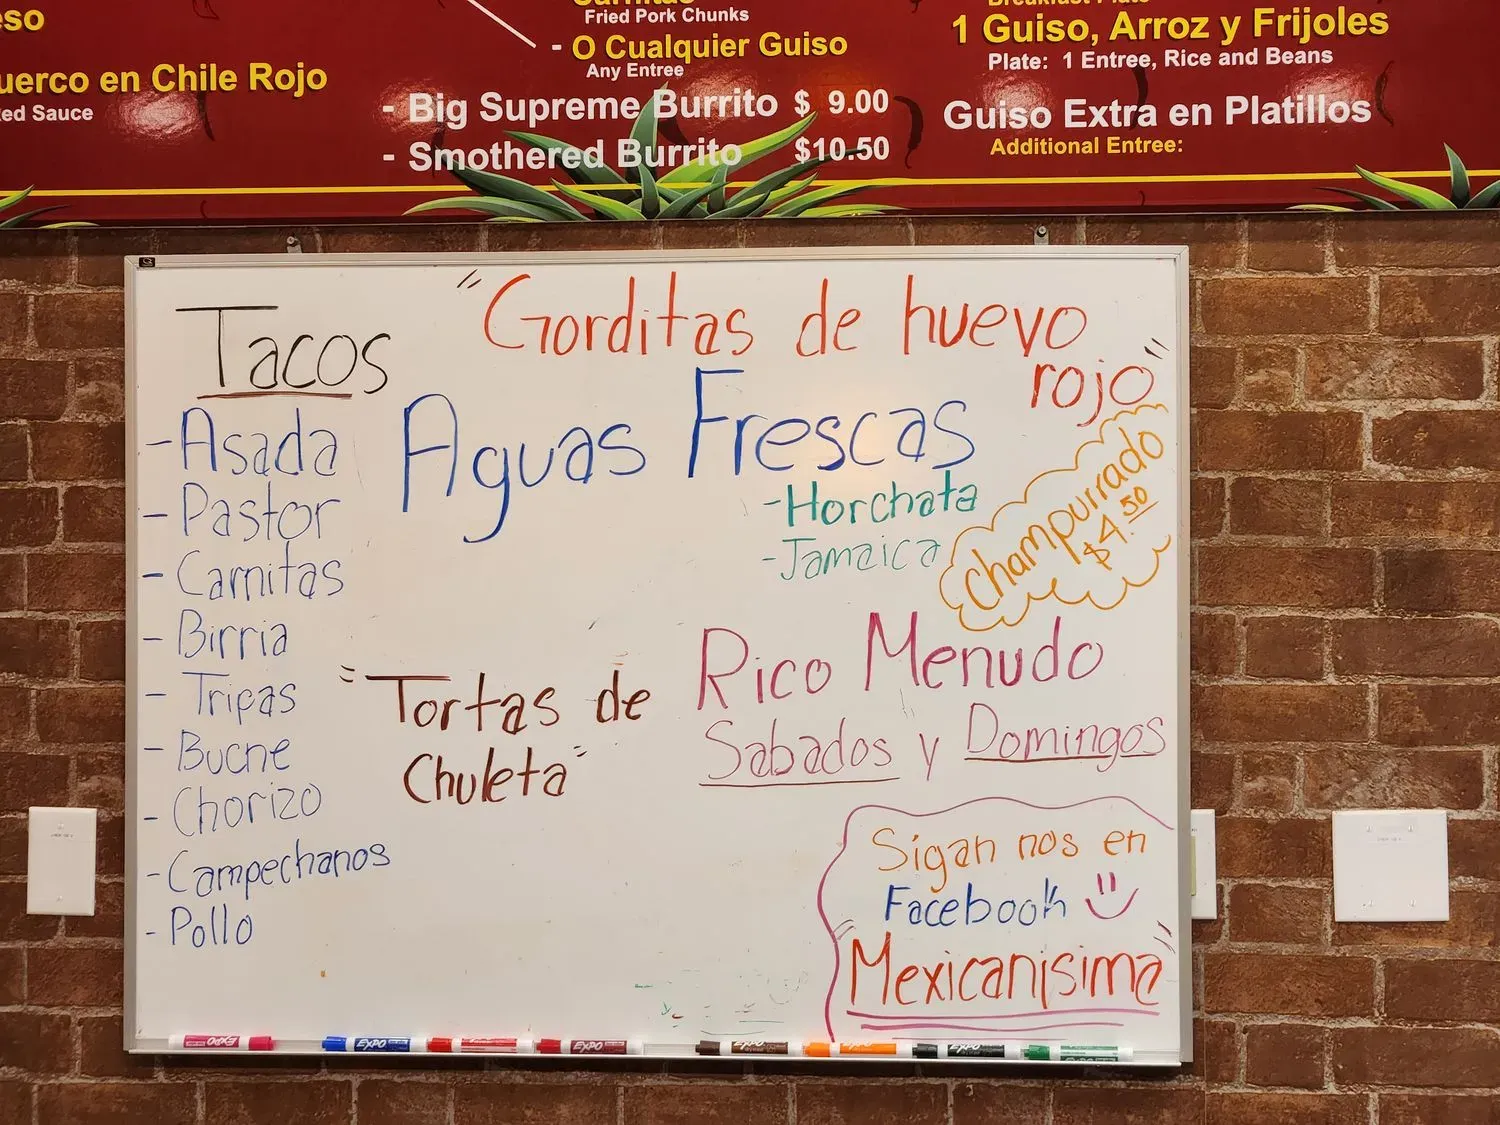 eso
uerco en Chile Rojo
ed Sauce
Carnitas
Fried Pork Chunks
- O Cualquier Guiso
Any Entree
- Big Supreme Burrito $ 9.00
- Smothered Burrito $10.50
Breakfast Plate
1 Guiso, Arroz y Frijoles
Plate: 1 Entree, Rice and Beans
Guiso Extra en Platillos
Additional Entree:
Tacos
- Asada
- Pastor
- Carnitas
- Birria
- Tripas
- Buche
- Chorizo
- Campechanos
- Pollo
"Gorditas de huevo
rojo"
Aguas Frescas
- Horchata
- Jamaica
Champurrado
$4.50
"Tortas de
Chuleta"
Rico Menudo
Sabados y Domingos
Sigan nos en
Facebook
"Mexicanisima"
EXPO
EXPO
EXPO
EXPO
EXPO
EXPO
EXPO
EXPO